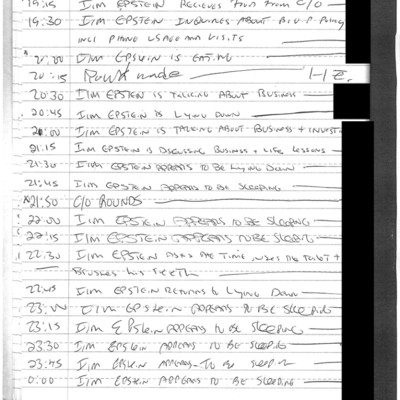 19:15 I/M EPSTEIN RECIEVES FOOD FROM C/O
19.30 I/M EPSTEIN INQUIRES ABOUT B.O.P Policy
INCl PHONE USAGE AND VISITS
20:00 I/M EPSTEIN IS EATING
20:15 Round made
20:30 I/M EPSTEIN IS TALKING ABOUT BUSINESS
20:45 I/M EPSTEIN IS Lying DOWN
21:00 I/M EPSTEIN IS TALKING ABOUT BUSINESS + INVEST
21:15 I/M EPSTEIN IS DISCUSSING BUSINESS + LIFE LESSONS
21:30 I/M EPSTEIN APPEARS TO BE Lying DOWN
21:45 I/M EPSTEIN APPEARS TO BE SLEEPING
*21:50 C/O ROUNDS
22:00 I/M EPSTEIN APPEARS TO BE SLEEPING
22:15 I/M EPSTEIN APPEARS TO BE SLEEPING
22:30 I/M EPSTEIN ASKS THE TIME USES THE TOILET +
BRUSHES HIS TEETH
22:45 I/M EPSTEIN RETURNS TO Lying DOWN
23:00 I/M EPSTEIN APPEARS TO BE SLEEPING
23:15 I/M EPSTEIN APPEARS TO BE SLEEPING
23:30 I/M EPSTEIN APPEARS TO BE SLEEPING
23:45 I/M EPSTEIN APPEARS TO BE SLEEPING
0:00 I/M EPSTEIN APPEARS TO BE SLEEPING